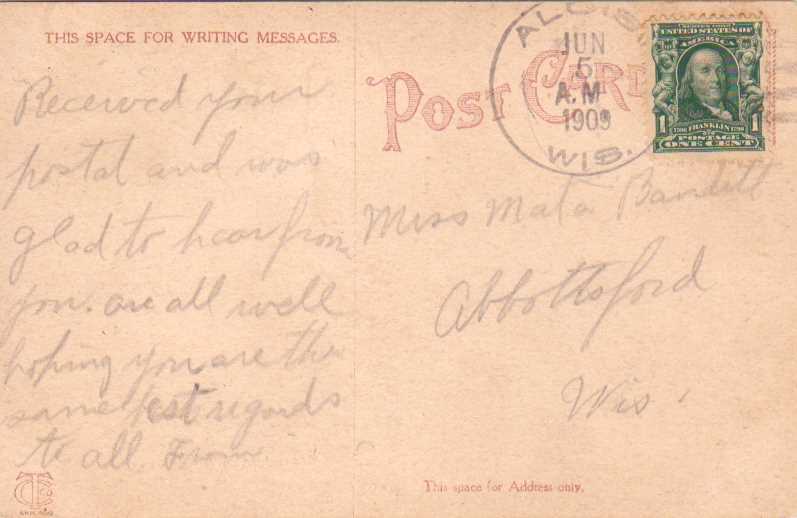 THIS SPACE FOR WRITING MESSAGES.
Received your
postal and was
glad to hear from
you. are all well
hoping you are the
same best regards
to all. From
POST CARD
ALOIS
JUN
5
A.M
1909
WIS.
SERIES 1902
UNITED STATES OF
AMERICA
1 1706 FRANKLIN 1790 1
POSTAGE
ONE CENT
Miss Mata
Abbottsford
Wis.
This space for Address only.
CHICAGO